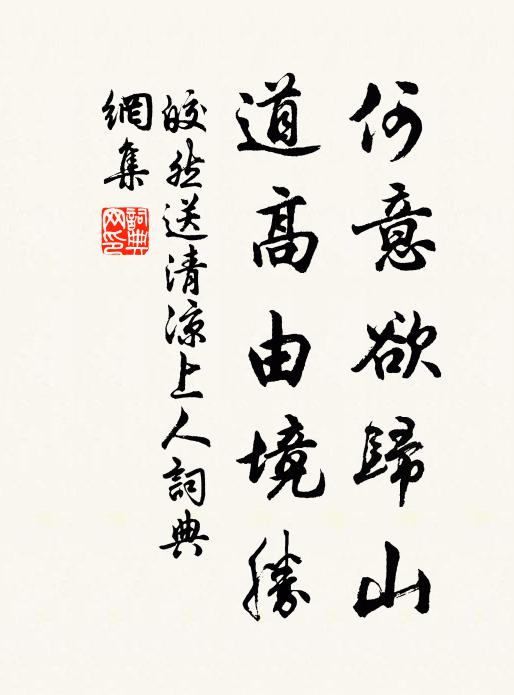 何意欲歸山
道高由境勝
皎然送清涼上人詞典
網集
詞典
网印